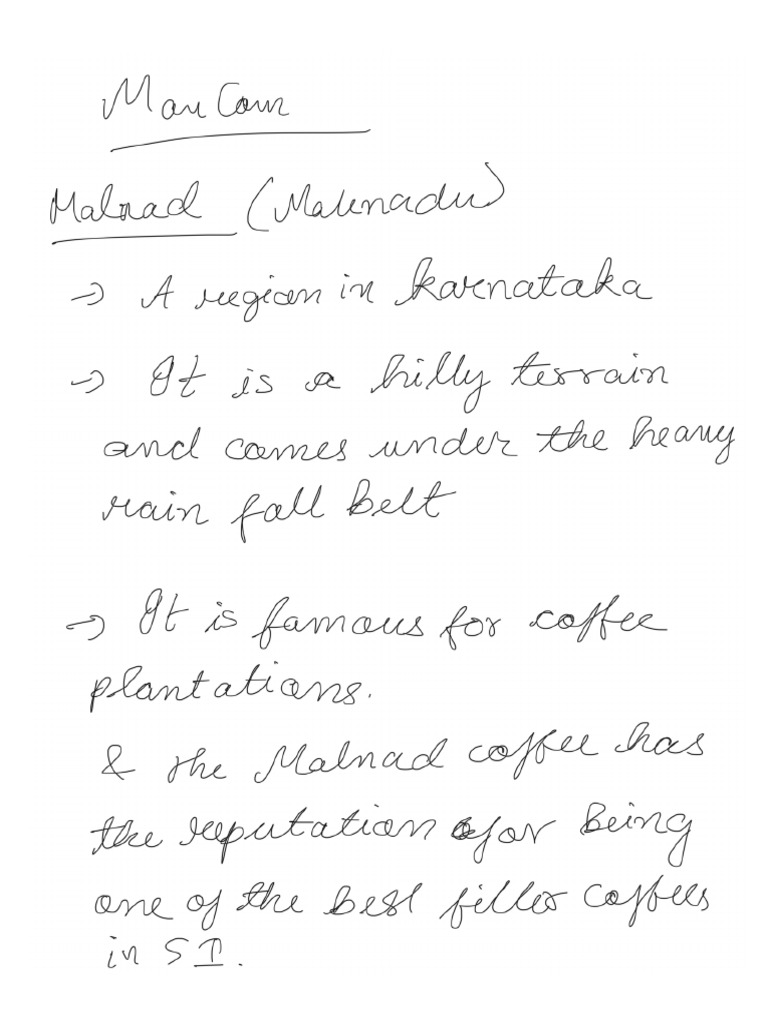 Man Com
Malnad (Malenadu)
→ A region in karnataka
→ It is a hilly terrain
and comes under the heavy
rain fall Belt
→ It is famous for coffee
plantations.
& the Malnad coffee has
the reputation for Being
one of the best filter coffees
in SI.